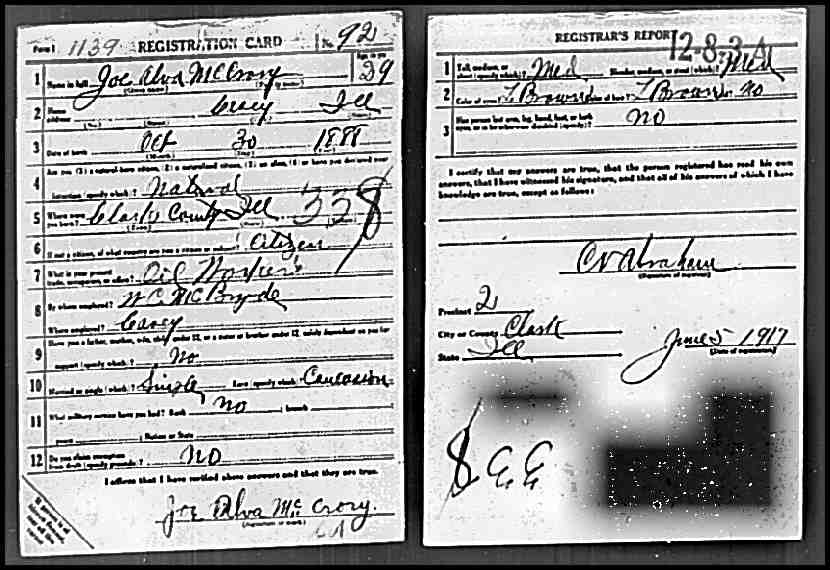 Form 1 1139 REGISTRATION CARD No. 92
1 Name in full Joe Alva McCrory Age in yrs 29
(Given name) (Family name)
2 Home address Casey Ill
(No.) (Street) (State)
3 Date of birth Oct 30 1888
(Month) (Day)
Are you (1) a natural-born citizen, (2) a naturalized citizen, (3) an alien, (4) or have you declared your
4 intention (specify which)? Natural
5 Where were you born? Clark County Ill 338
(Town) (State)
6 If not a citizen, of what country are you a citizen or subject? Citizen
7 What is your present trade, occupation, or office? Oil Worker
8 By whom employed? W.C. McBryde
Where employed? Casey
Have you a father, mother, wife, child under 12, or a sister or brother under 12, solely dependent on you for
9 support (specify which)? No
10 Married or single (which)? Single Race (specify which)? Caucasion
11 What military service have you had? Rank No ; branch
years ; Nation or State
12 Do you claim exemption from draft (specify grounds)? No
I affirm that I have verified above answers and that they are true.
Joe Alva McCrory
(Signature or mark)
REGISTRAR'S REPORT 12-8-3-A
1 Tall, medium, or short (specify which)? Med Slender, medium, or stout (which)? Med
2 Color of eyes? L Brown Color of hair? L Brown Bald? No
3 Has person lost arm, leg, hand, foot, or both eyes, or is he otherwise disabled (specify)? No
I certify that my answers are true, that the person registered has read his own
answers, that I have witnessed his signature, and that all of his answers of which I have
knowledge are true, except as follows:
CV Abraham
(Signature of registrar)
Precinct 2
City or County Clark
State Ill
June 5 1917
(Date of registration)